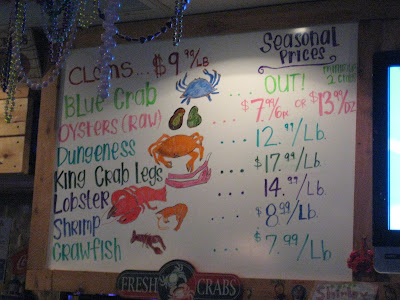 Clams... $9.99/Lb
Seasonal Prices
minimum 2 Lbs
Blue Crab .... OUT!
Oysters (Raw) ... $7.99/6pk or $13.99/DZ
Dungeness .... 12.99/Lb.
King Crab Legs .... $17.99/Lb.
Lobster .... 14.99/Lb.
Shrimp .... $8.99/Lb.
Crawfish .... $7.99/Lb.
FRESH CRABS